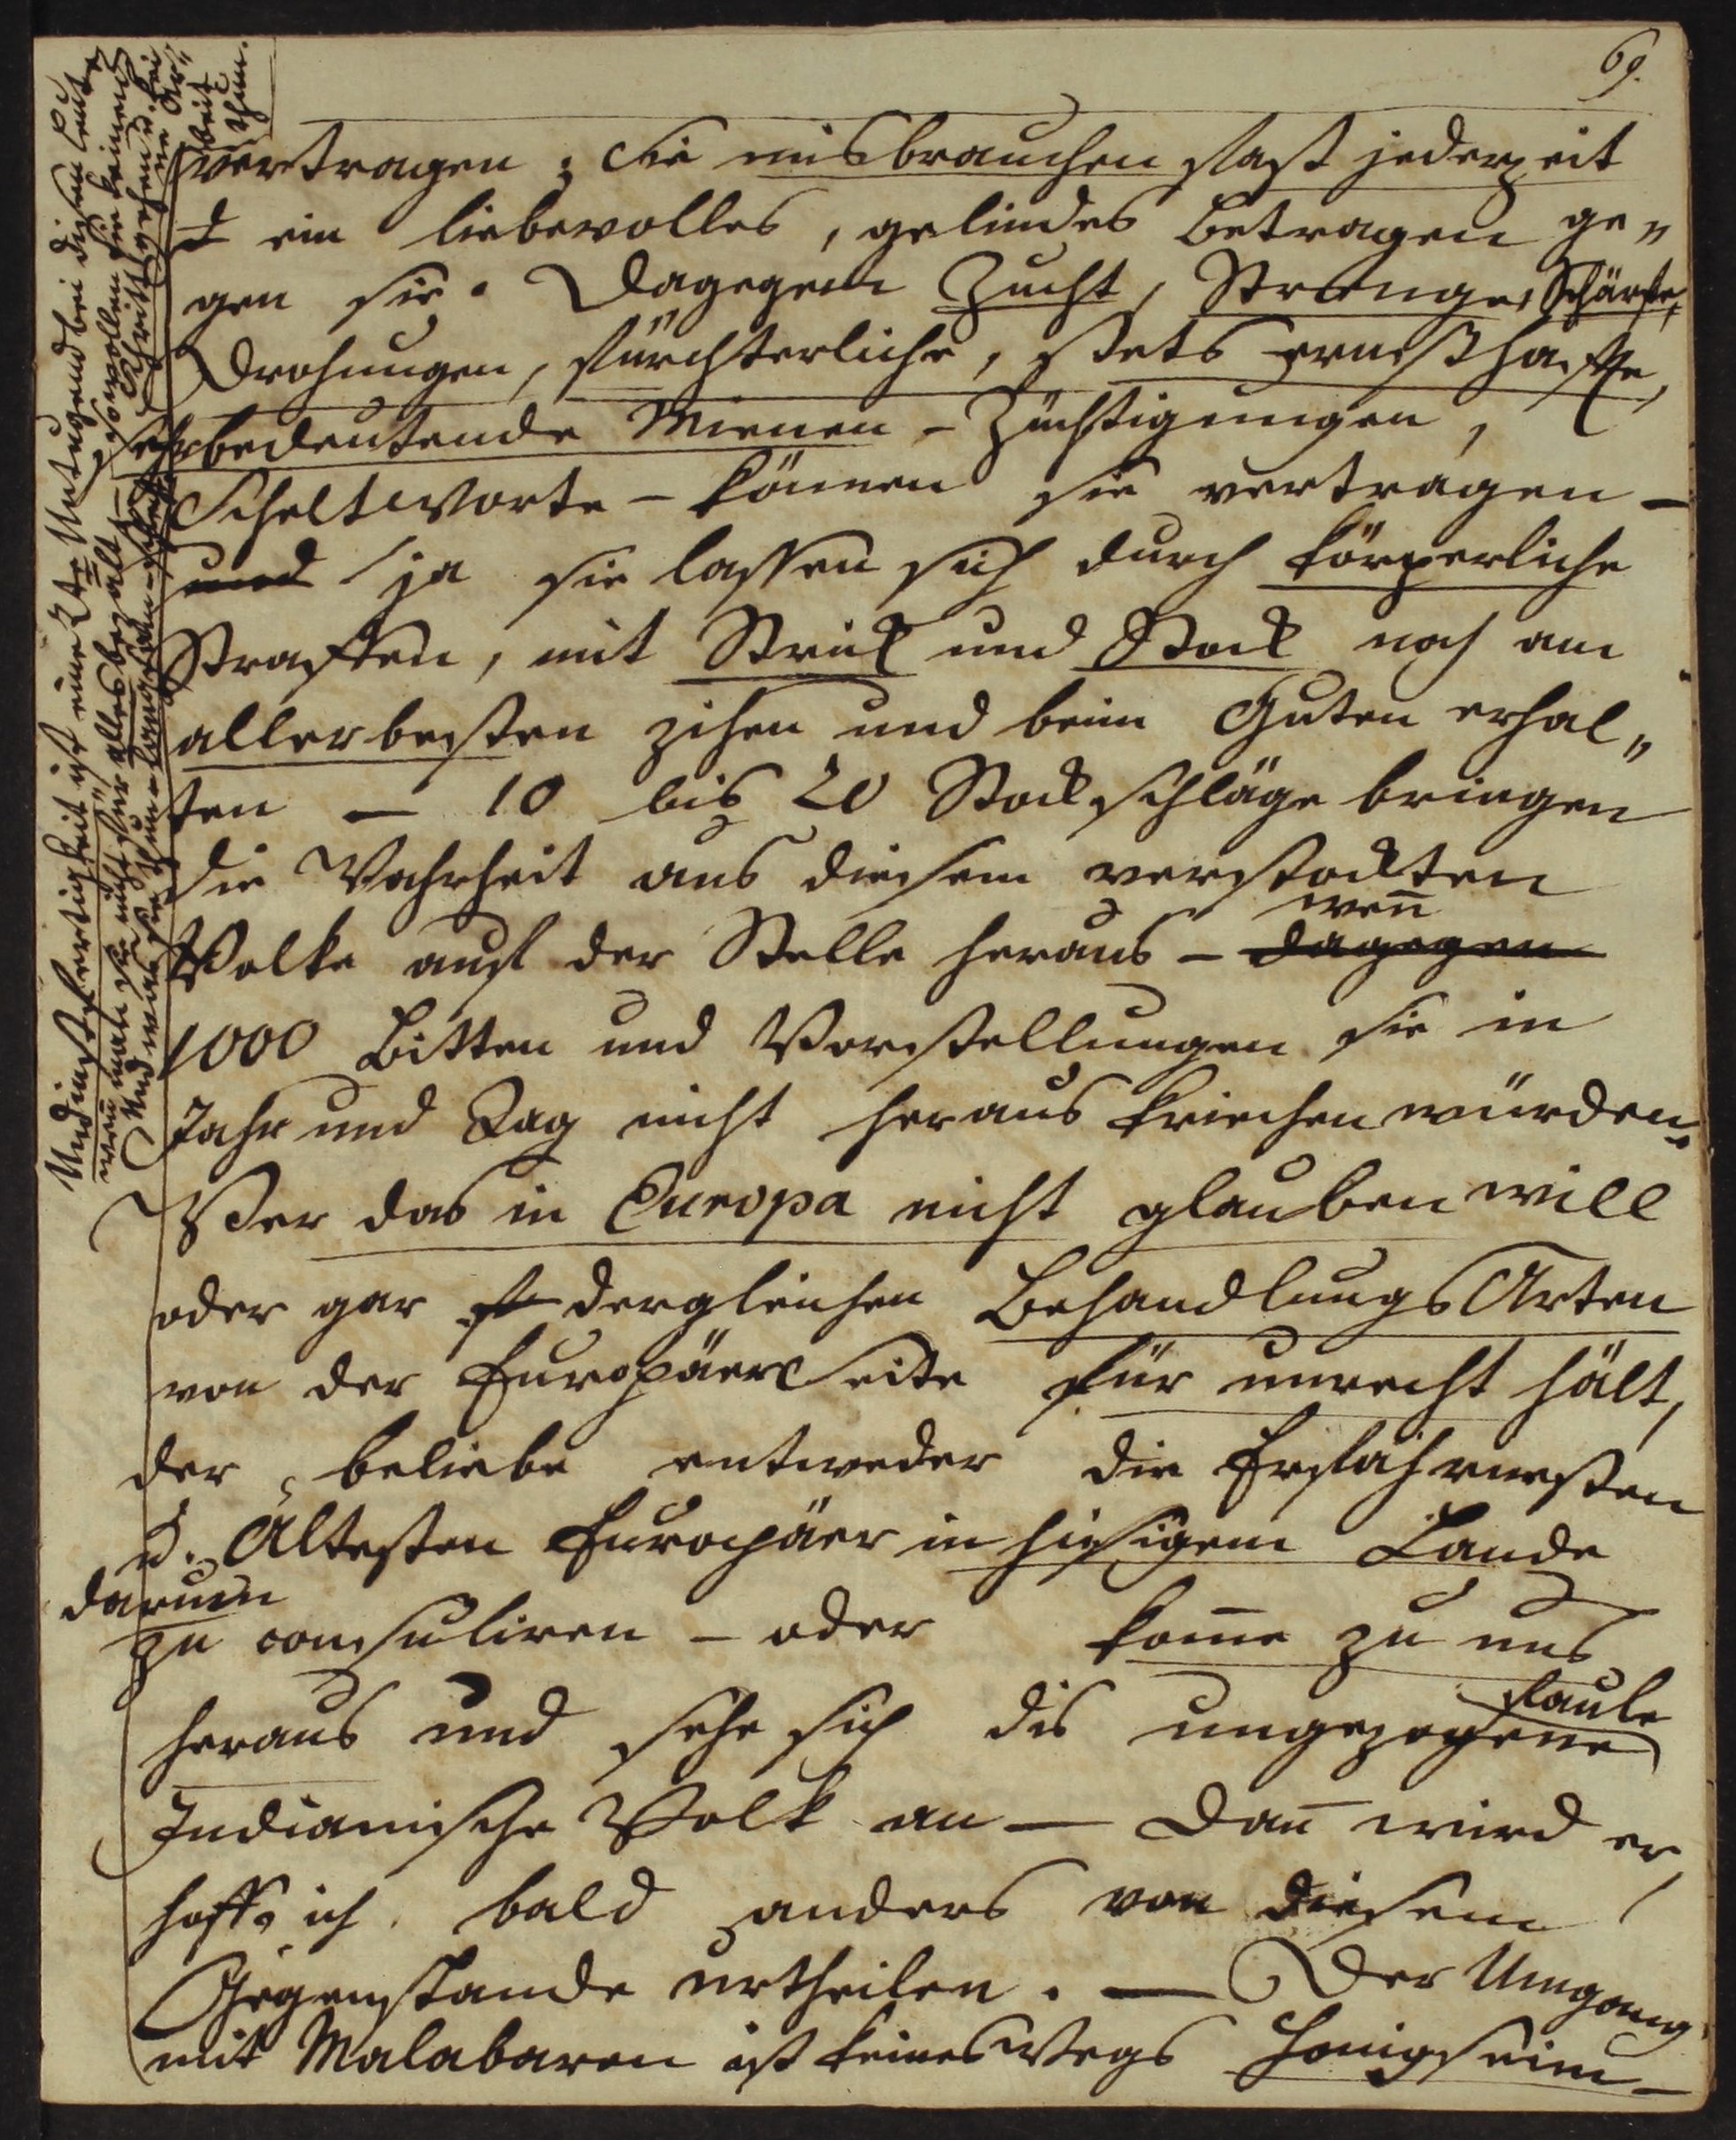 69.
vertragen; Sie misbrauchen fast jederzeit
ein liebevolles, gelindes Betragen ge„
gen sie. Dagegen Zucht, Strenge, Schärfe,
Drohungen, fürchterliche, stets ernsthaffte,
sehrbedeutende Mienen – Züchtigungen,
Scheltworte – können sie vertragen –
und ja sie lassen sich durch körperliche
Straffen, mit Strick und Stock noch am
allerbesten zihen und beim Guten erhal„
ten — 10 bis 20 Stockschläge bringen
die Wahrheit aus diesem verstockten
wen̄
Volke auf der Stelle heraus – dagegen
1000 Bitten und Vorstellungen sie in
Jahr und Tag nicht heraus kriechen würden.
Wer das in Europa nicht glauben will
oder gar dergleichen BehandlungsArten
von der Europäer Seite für unrecht hält,
der beliebe entweder die Erfahrensten
u. Ältesten Europäer in hiesigem Lande
darum
zu consuliren – oder kom̄e zu uns
faule
heraus und sehe sich dis ungezogene
Indianische Volk an — Dan̄ wird er,
hoffe ich, bald anders von diesem
Gegenstande urtheilen. — Der Umgang
mit Malabaren ist keineswegs Honigseim –
Undienstfertigkeit ist eine 2te Untugend bei disen Leuten
wen̄ man ihr nicht für alles bezalt – so wollen sie keinen
Schritt gehen u. keine Ar„
beit
thun.
Und was sie thun – langsam –